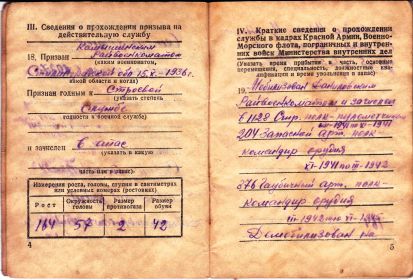 III. Сведения о прохождении призыва на
действительную службу
18. Призван
Райвоенкоматом
(каким военкоматом,
15.X.-1936г.
какой области и когда)
Признан годным к Строевой
(указать степень
Службе
годности к военной службе)
и зачислен в запас
(указать в какую
часть или в запас)
Измерения роста, головы, ступни в сантиметрах
или указание номерах (ростовках)
Рост
Окружность головы
Размер противогаза
Размер обуви
164
57
2
42
4
IV. Краткие сведения о прохождении
службы в кадрах Красной Армии, Военно-
Морского флота, пограничных и внутрен-
них войск Министерства внутренних дел
(Указать время прибытия в часть, основные
перемещения, специальность, должностную ква-
лификацию и время увольнения в запас)
19. Мобилизован Даниловским
Райвоенкоматом и зачислен
в 1128 Стр. полк - пулеметчиком
VI-1941
204 Запасной арт. полк
командир орудия
VI-1941 по III-1942
376 Гаубичный арт. полк -
командир орудия
III-1942 по
Демобилизован на
5